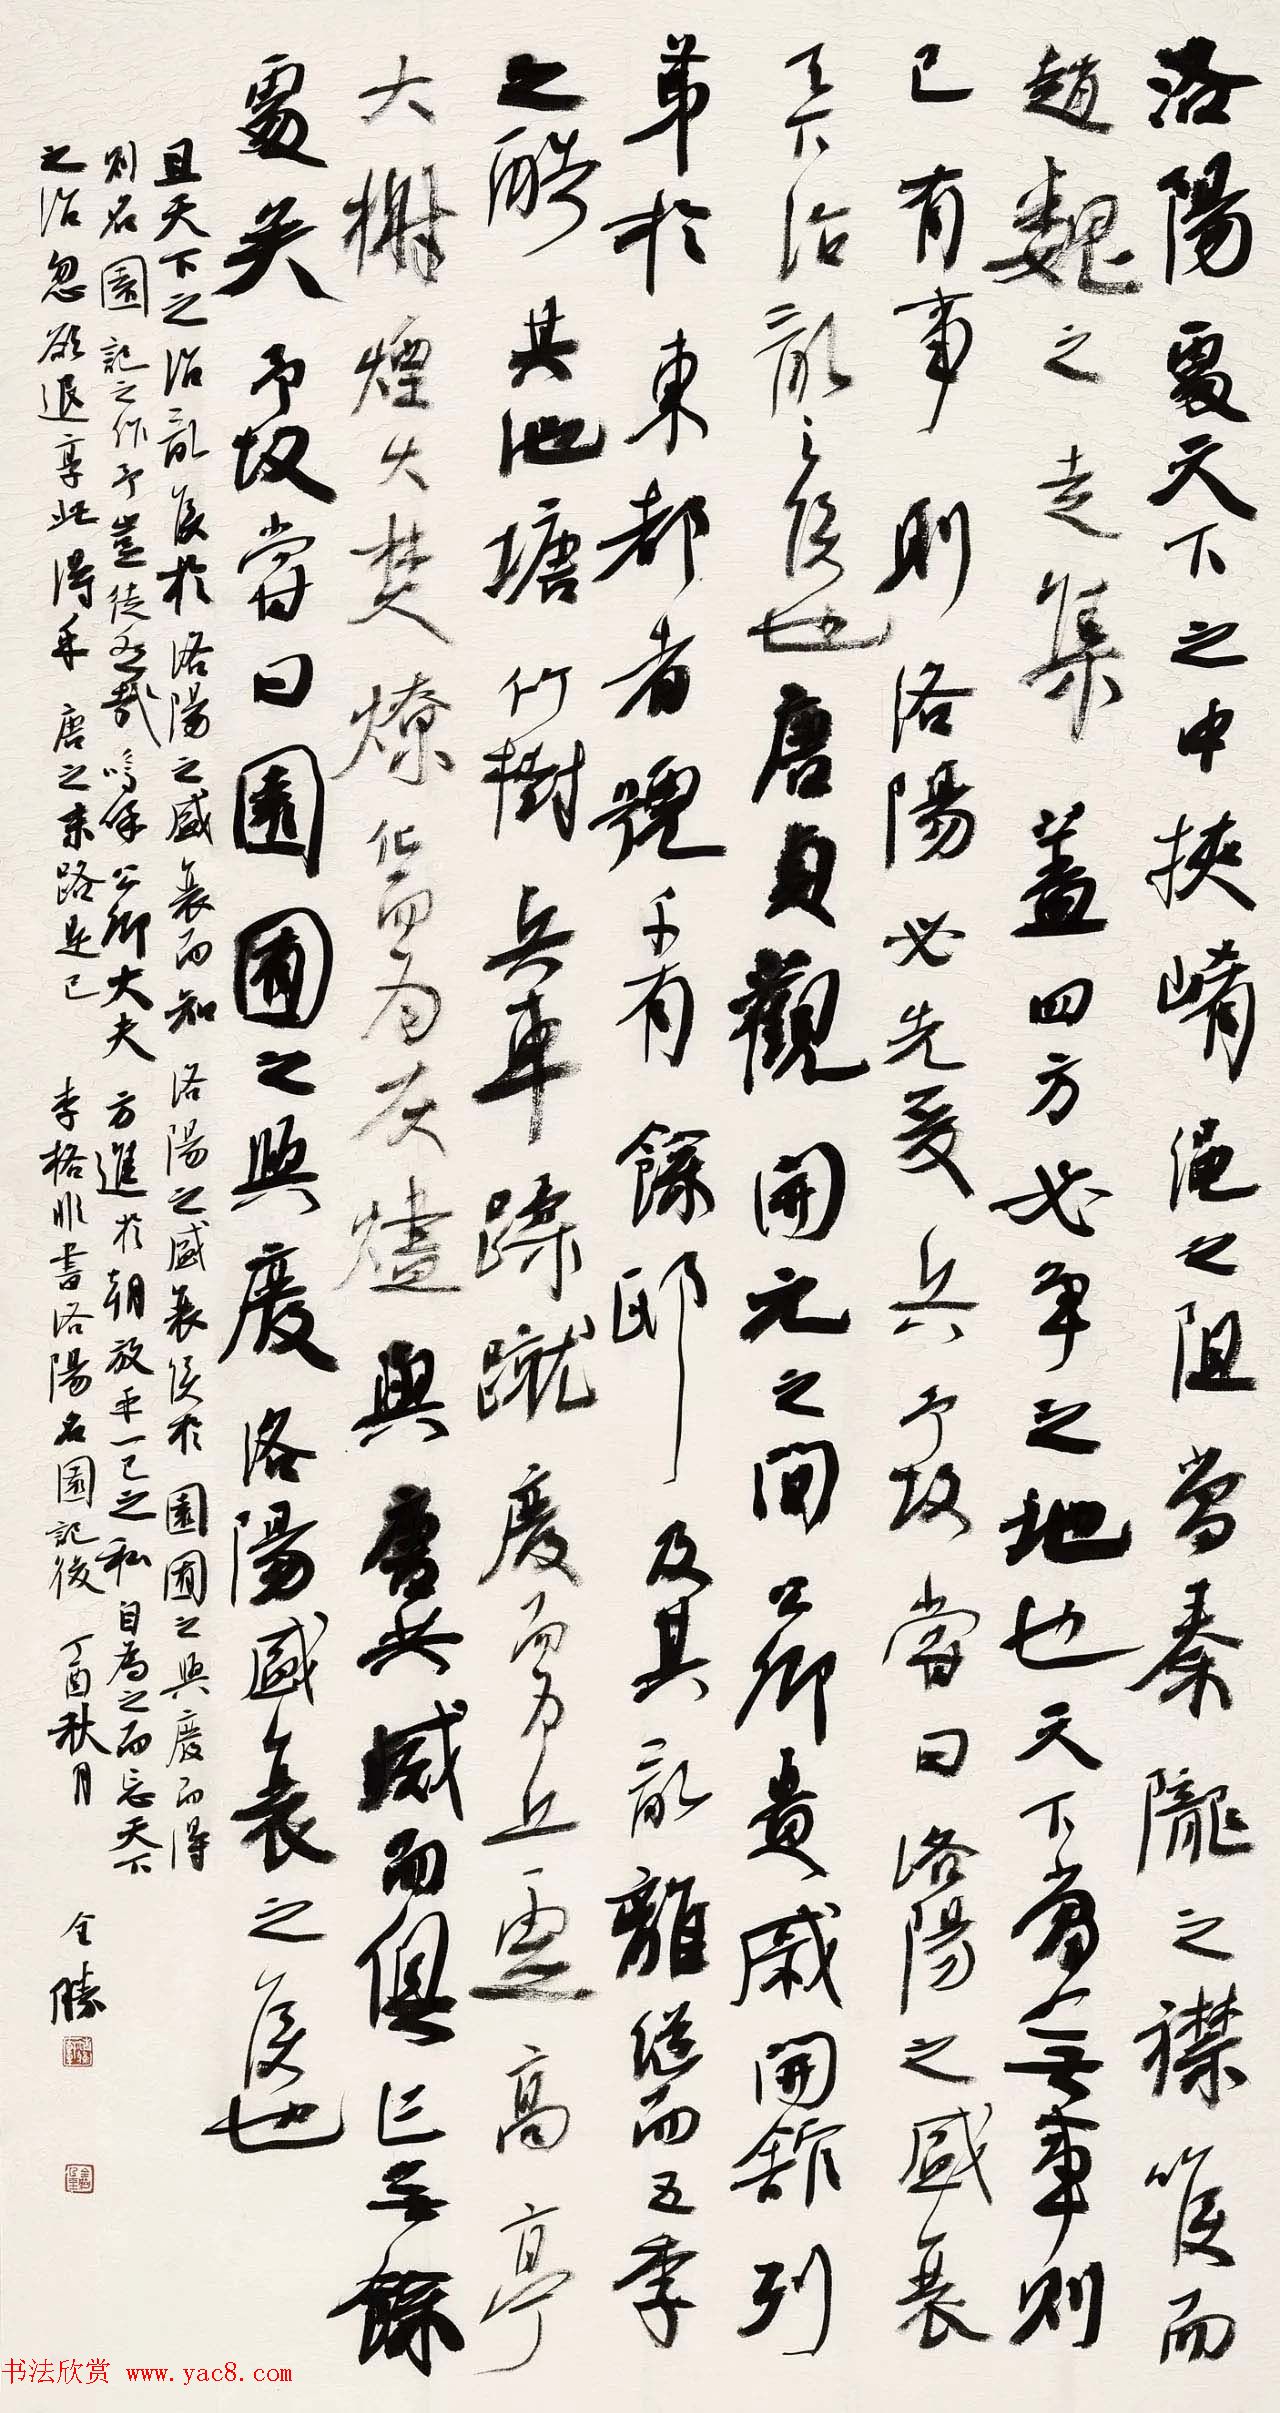 洛陽處天下之中挾崤澠之阻當秦隴之襟喉而
趙魏之走集蓋四方必爭之地也天下當無事則
已有事則洛陽必先受兵予故嘗曰洛陽之盛衰
天下治亂之候也唐貞觀開元之間公卿貴戚開館列
第於東都者號千有餘邸及其亂離繼而五季
之酷其池塘竹樹兵車蹂蹴廢而為丘墟高亭
大榭煙火焚燎化而為灰燼與唐共滅而俱亡無餘
處矣予故嘗曰園囿之興廢洛陽盛衰之候也
且天下之治亂候於洛陽之盛衰而知洛陽之盛衰候於園囿之興廢而得
則名園記之作予豈徒然哉嗚呼公卿大夫方進於朝放乎一己之私自為之而忘天下
之治忽欲退享此得乎唐之末路是已 李格非書洛陽名園記後 丁酉秋月
全勝
书法欣赏 www.yac8.com